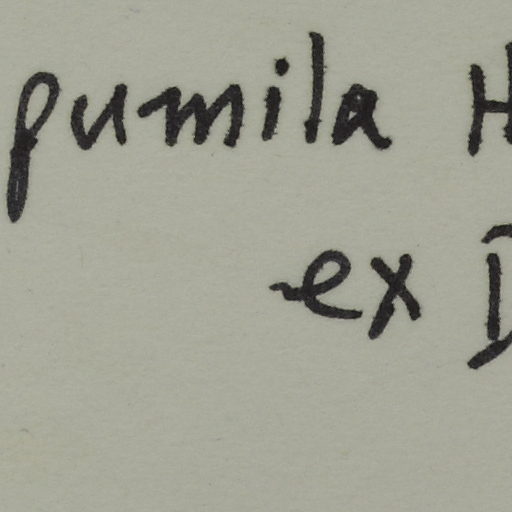 pumila H
ex D